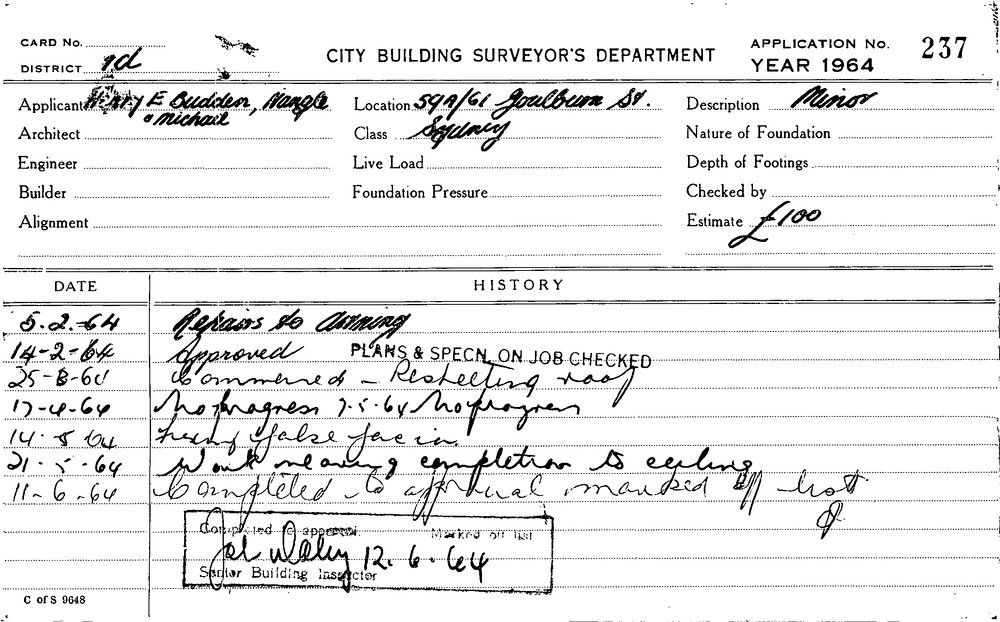 CARD No.
DISTRICT
CITY BUILDING SURVEYOR'S DEPARTMENT
APPLICATION No. 237
YEAR 1964
Applicant E Budden, Nangle
& Michael
Location 59A/61 Goulburn St.
Sydney
Description Minor
Architect
Class
Nature of Foundation
Engineer
Live Load
Depth of Footings
Builder
Foundation Pressure
Checked by
Alignment
Estimate £100
DATE HISTORY
5.2.-64 Repairs to Awning
14-2-64 Approved PLANS & SPECN. ON JOB CHECKED
Commenced - Resheeting roof
17-4-64 No progress 7-5-64 No progress
14.5.64 Fixing false facia
21-5-64 Work nearing completion to ceiling
11-6-64 Completed to approval marked off list
Completed to approval Marked off list
12.6.64
Senior Building Inspector
C of S 9648